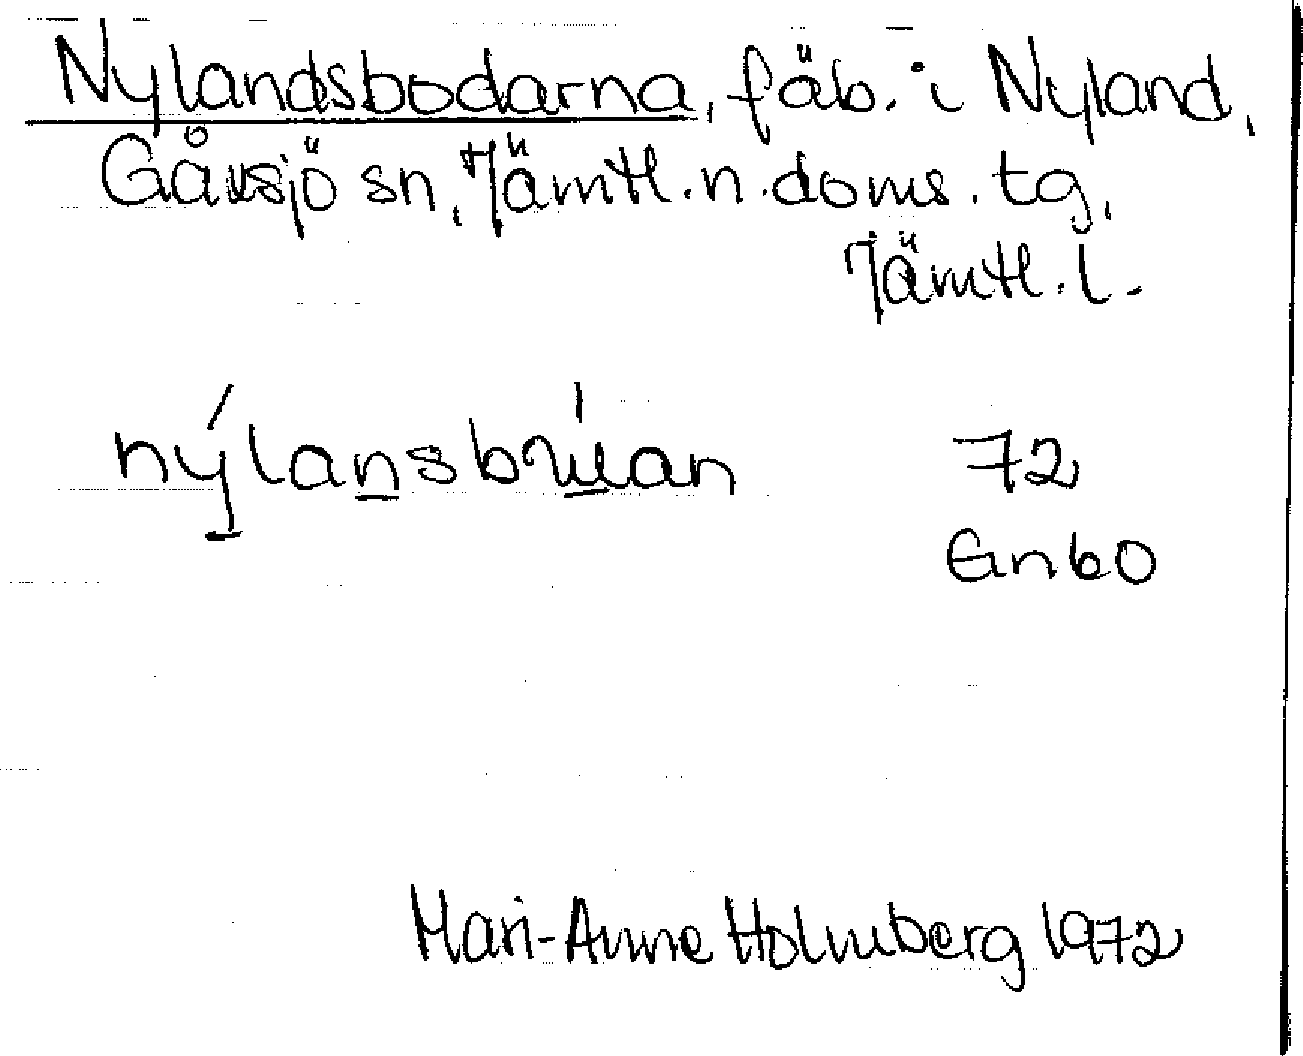 Nylandsbodarna, fäb. i Nyland,
Gåxsjö sn, Jämtl. n. doms. tg,
Jämtl. l.
72
Gnbo
Mari-Anne Holmberg 1972